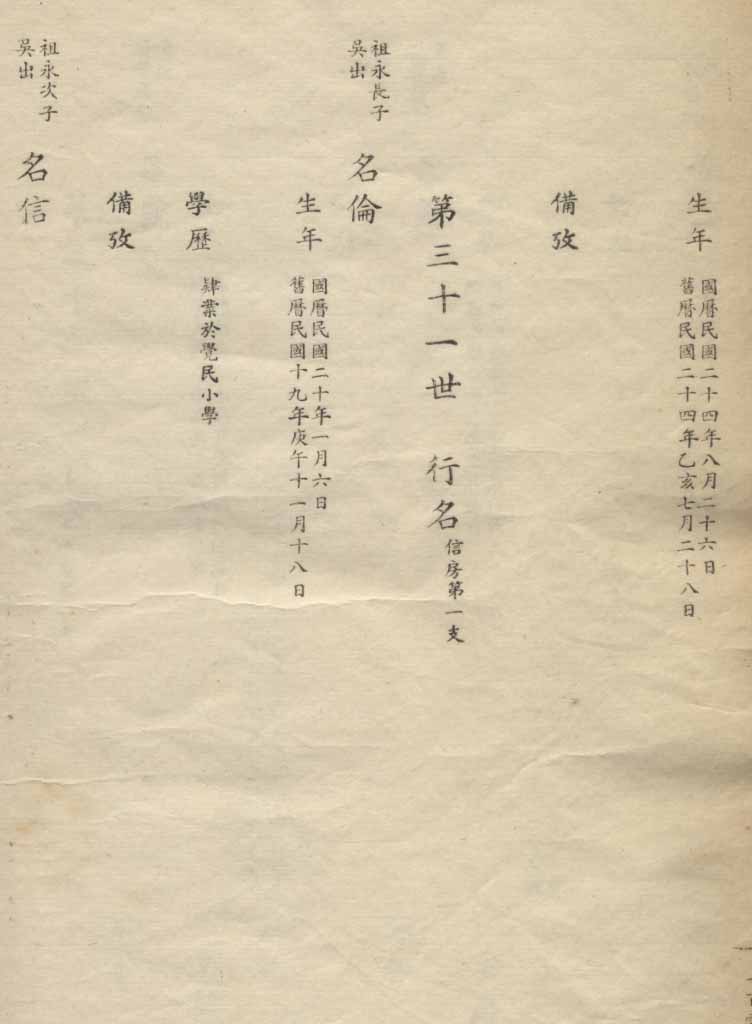 生年
國曆民國二十四年八月二十六日
舊曆民國二十四年乙亥七月二十八日
備攷
第三十一世 行名 信房第一支
祖永長子
吳出
名倫
生年
國曆民國二十年一月六日
舊曆民國十九年庚午十一月十八日
學歷
肄業於覺民小學
備攷
祖永次子
吳出
名信